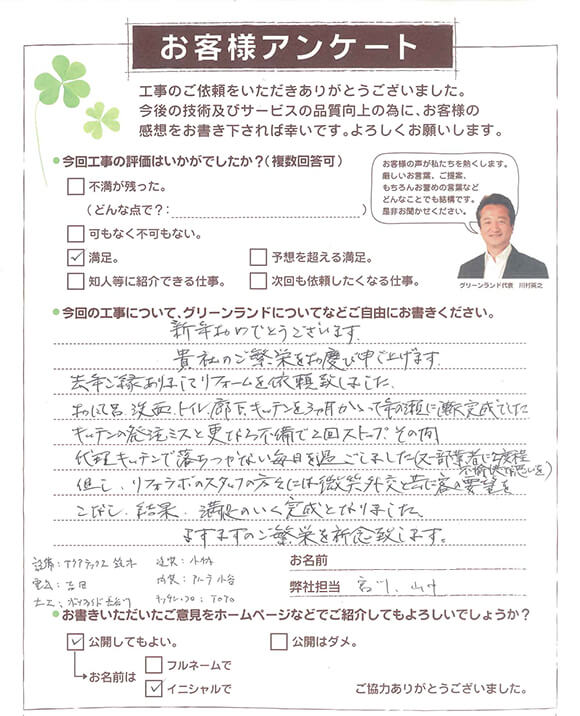 お客様アンケート
工事のご依頼をいただきありがとうございました。
今後の技術及びサービスの品質向上の為に、お客様の
感想をお書き下されば幸いです。よろしくお願いします。
今回工事の評価はいかがでしたか？(複数回答可)
不満が残った。
（どんな点で？：　）
可もなく不可もない。
満足。
予想を超える満足。
知人等に紹介できる仕事。
次回も依頼したくなる仕事。
お客様の声が私たちを熱くします。
厳しいお言葉、ご提案、
もちろんお誉めの言葉など
どんなことでも結構です。
是非お聞かせください。
グリーンランド代表　川村英之
今回の工事について、グリーンランドについてなどご自由にお書きください。
新年おめでとうございます
貴社のご繁栄をお慶び申し上げます
去年ご縁ありましてリフォームを依頼致しました
お風呂、洗面、トイレ、廊下、キッチンを3ヶ月かかって年の瀬に漸く完成でした
キッチンの発注ミスと更なる不備で2回ストップ その間
代理キッチンで落ちつかない毎日を過ごしました(又一部業者に2度程
不愉快な思いを)
但し、リフォラボのスタッフの方々には微笑外交と共に客の要望を
こなし、結果、満足のいく完成となりました、
ますますのご繁栄を祈念致します。
設備：アクアテックス 鈴木
建築：小林
電気：吉田
内装：小谷
大工：長谷川
キッチン、フロ：TOTO
お名前
弊社担当　宮川、山中
お書きいただいたご意見をホームページなどでご紹介してもよろしいでしょうか？
公開してもよい。
公開はダメ。
お名前は
フルネームで
イニシャルで
ご協力ありがとうございました。